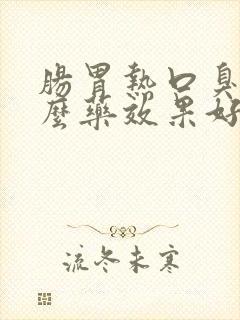 腸胃熱口臭
麼藥效果好
流冬未寒